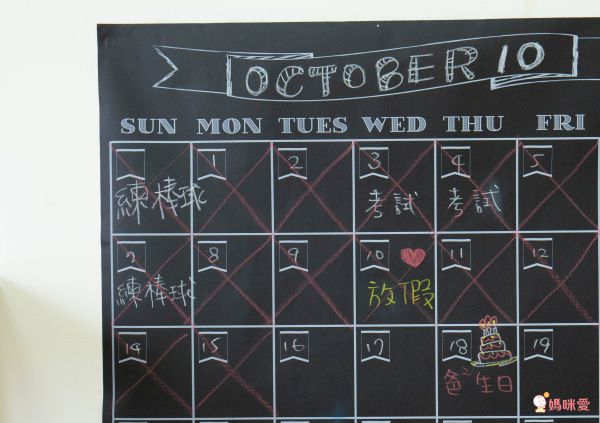 OCTOBER 10
SUN MON TUES WED THU FRI
1 2 3 4 5
練棒球 考試 考試
7 8 9 10 11 12
練棒球 放假
14 15 16 17 18 19
爸² 生日
媽咪愛